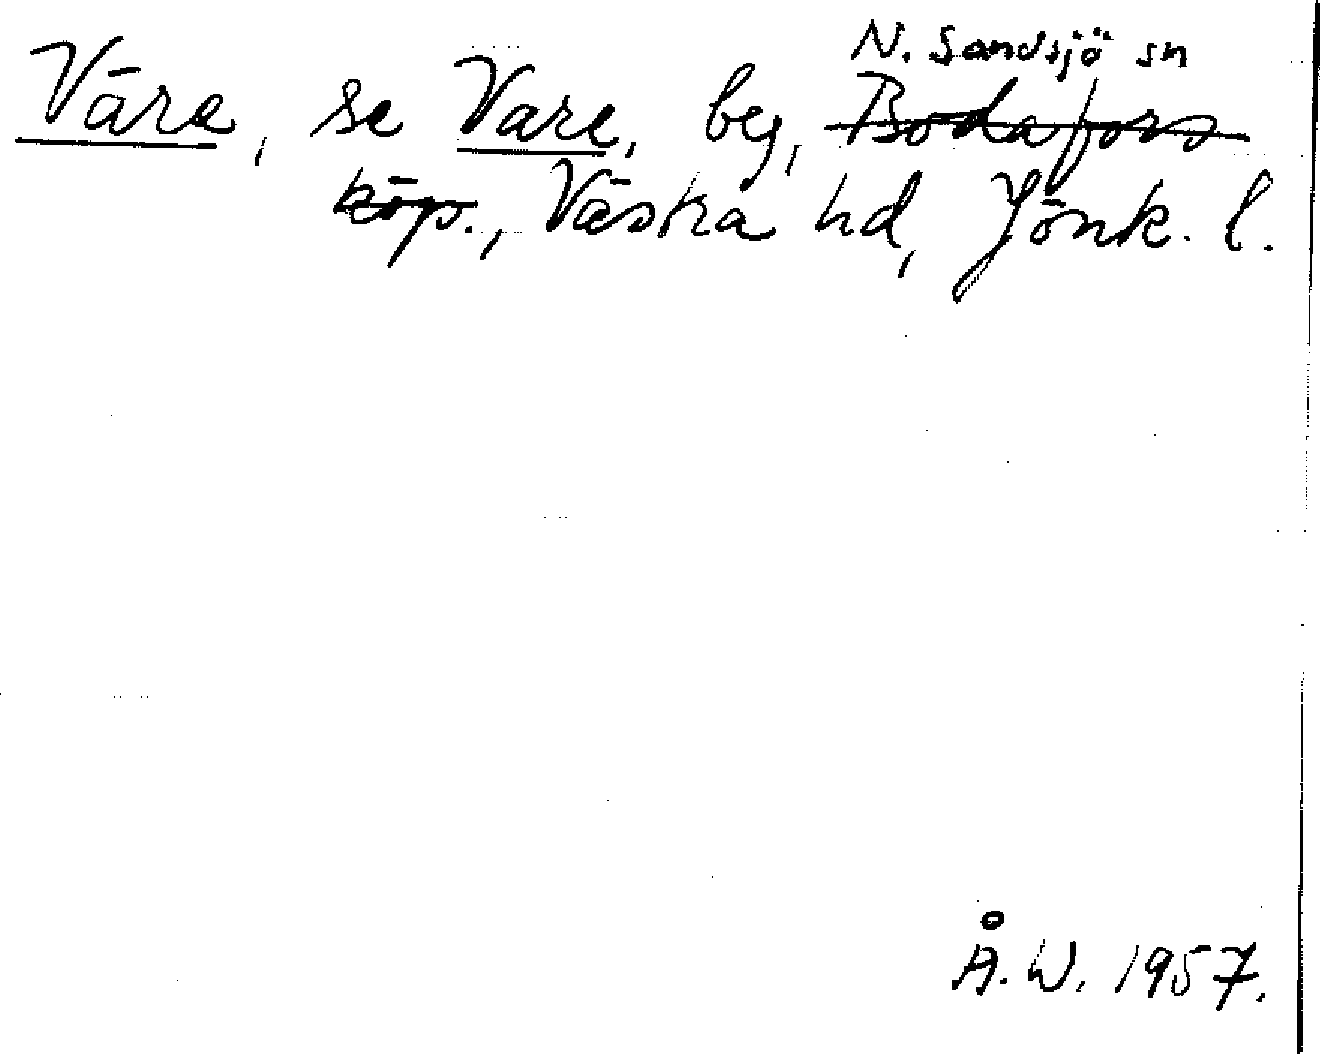 N. Sandsjö sn
Väre, se Vare, beg, Bodafors
köp., Västra hd, Jönk. l.
Å.W. 1957.